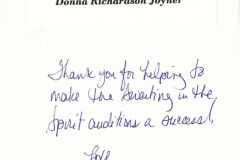 Donna Richardson Joyner
Thank you for helping to
make the Sweating in the
Spirit auditions a success!
Love